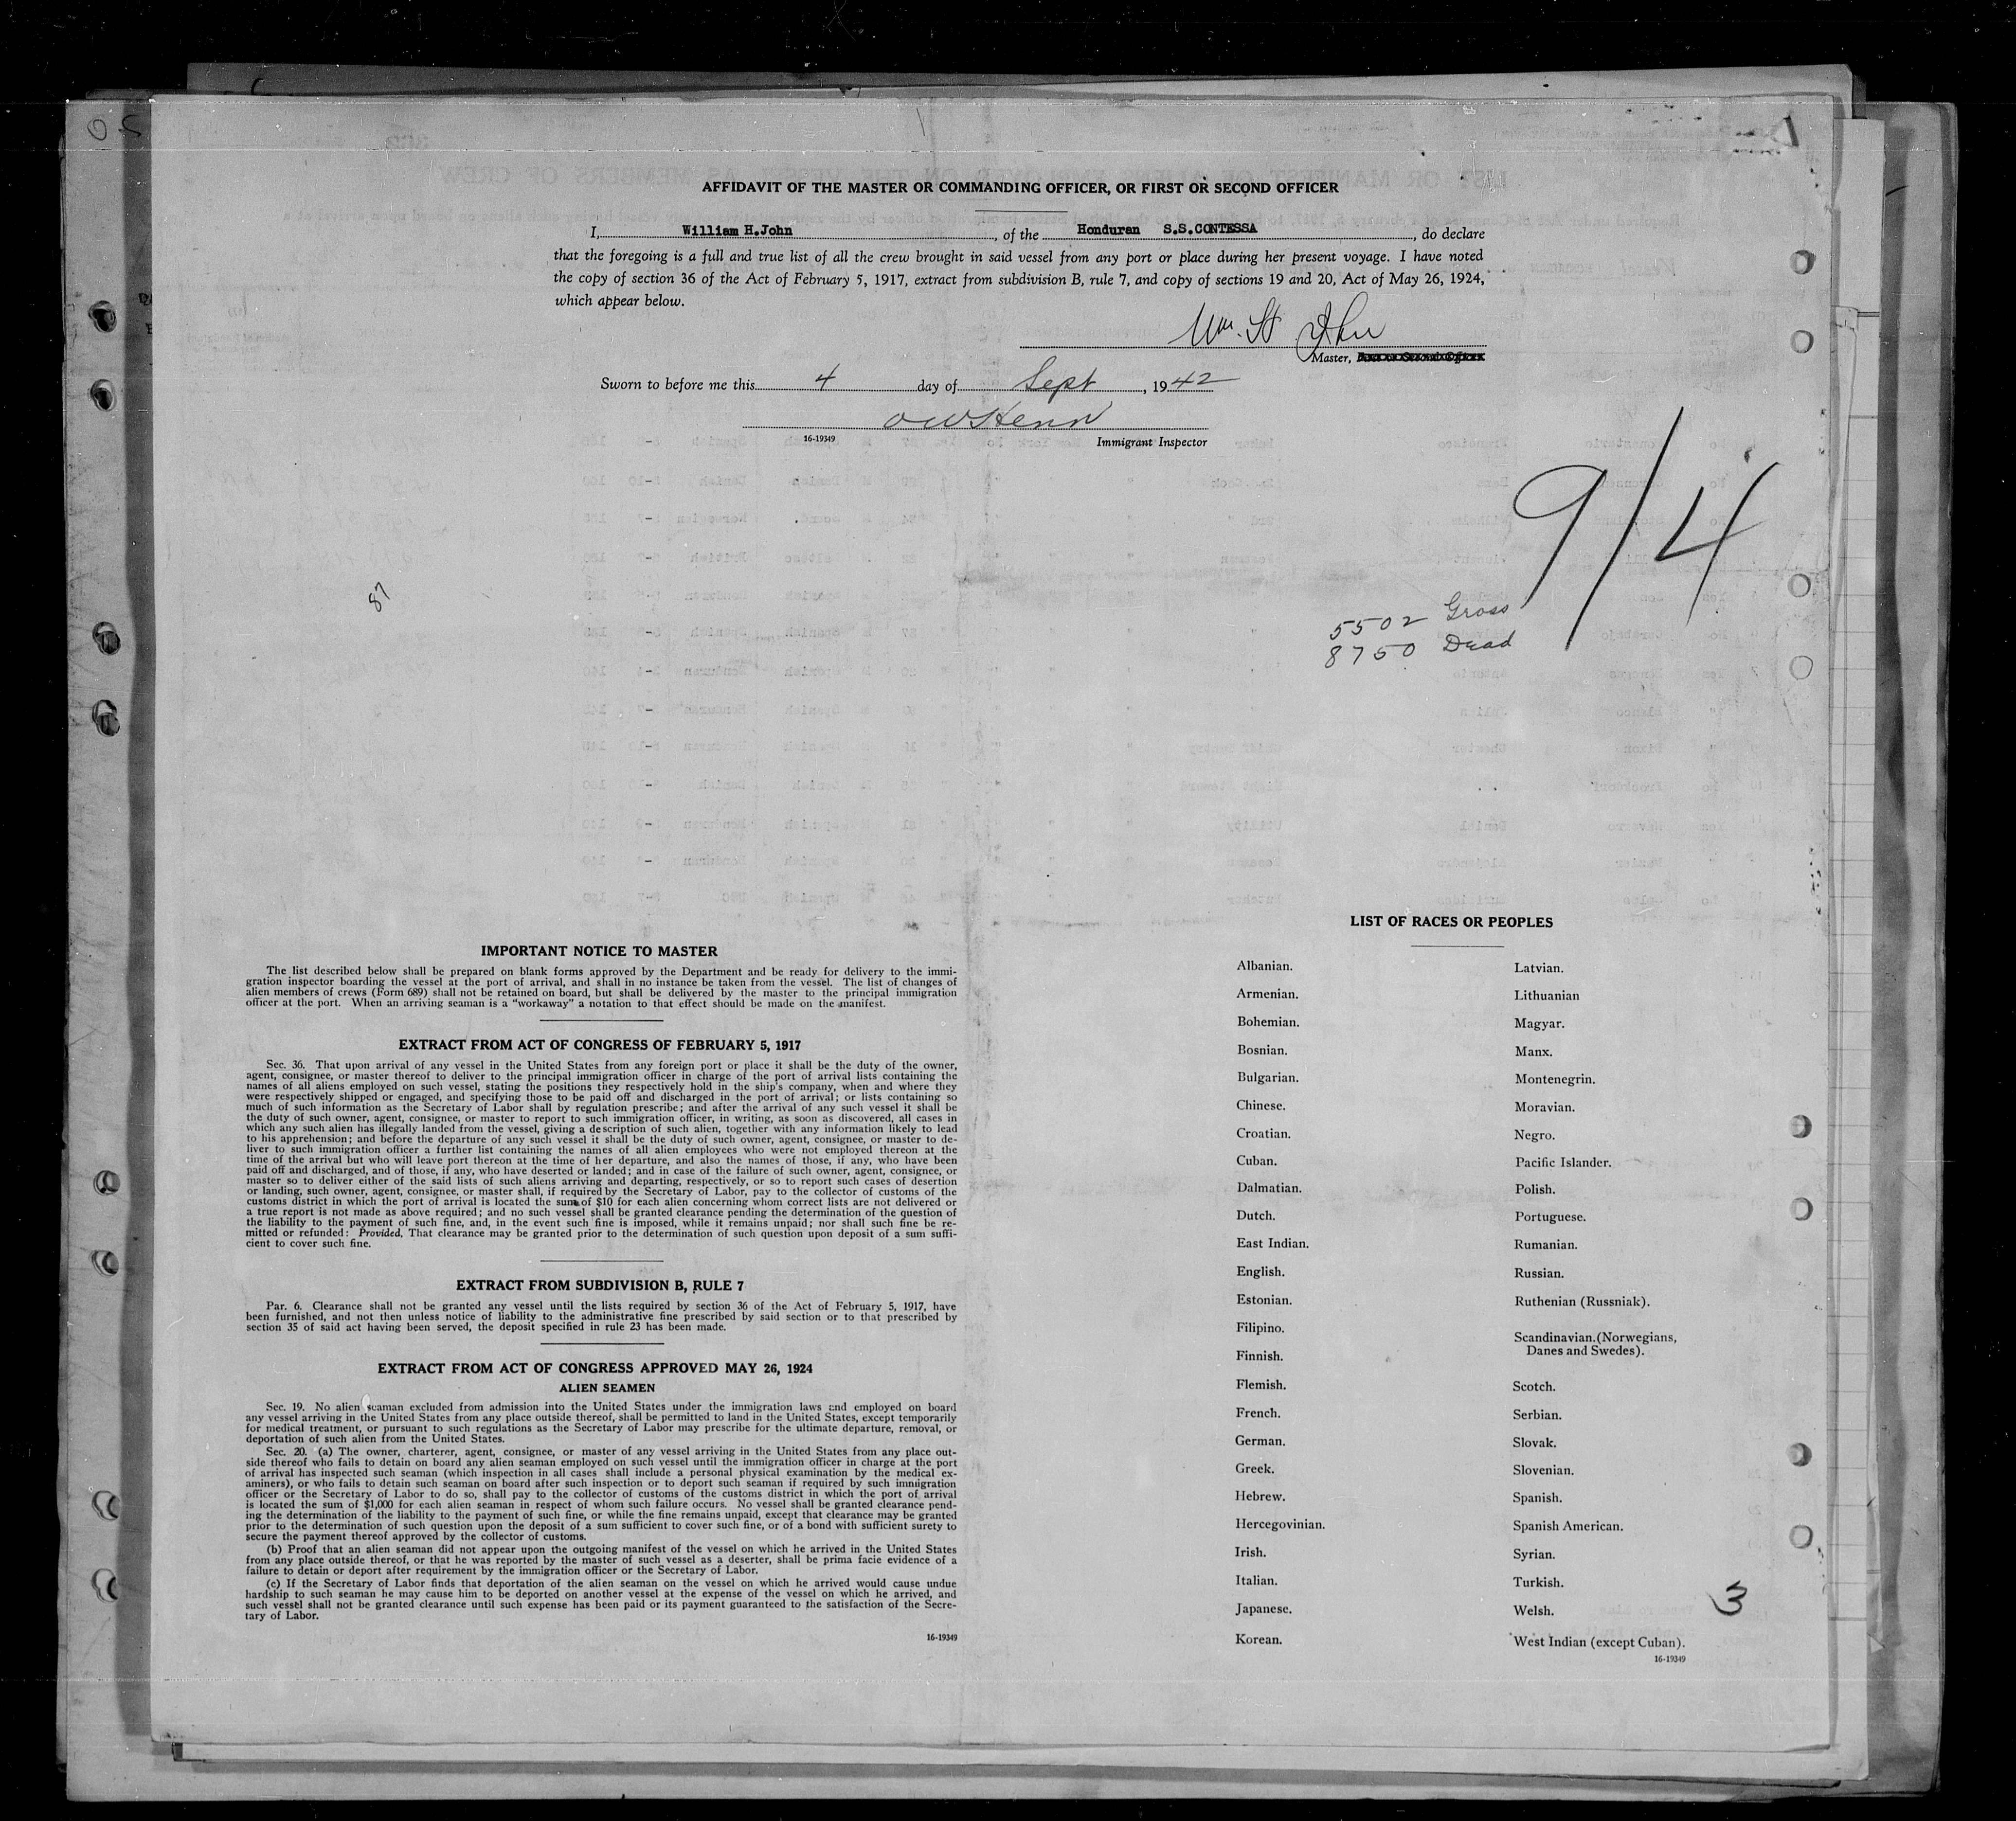 AFFIDAVIT OF THE MASTER OR COMMANDING OFFICER, OR FIRST OR SECOND OFFICER
I, William H.John, of the Honduran S.S.CONTESSA, do declare
that the foregoing is a full and true list of all the crew brought in said vessel from any port or place during her present voyage. I have noted
the copy of section 36 of the Act of February 5, 1917, extract from subdivision B, rule 7, and copy of sections 19 and 20, Act of May 26, 1924,
which appear below.
Wm. H John
Master,
Sworn to before me this 4 day of Sept, 1942
16-19349 Immigrant Inspector
9/4
87
5502 Gross
8750 Dead
IMPORTANT NOTICE TO MASTER
The list described below shall be prepared on blank forms approved by the Department and be ready for delivery to the immi-
gration inspector boarding the vessel at the port of arrival, and shall in no instance be taken from the vessel. The list of changes of
alien members of crews (Form 689) shall not be retained on board, but shall be delivered by the master to the principal immigration
officer at the port. When an arriving seaman is a "workaway" a notation to that effect should be made on the manifest.
EXTRACT FROM ACT OF CONGRESS OF FEBRUARY 5, 1917
Sec. 36. That upon arrival of any vessel in the United States from any foreign port or place it shall be the duty of the owner,
agent, consignee, or master thereof to deliver to the principal immigration officer in charge of the port of arrival lists containing the
names of all aliens employed on such vessel, stating the positions they respectively hold in the ship's company, when and where they
were respectively shipped or engaged, and specifying those to be paid off and discharged in the port of arrival; or lists containing so
much of such information as the Secretary of Labor shall by regulation prescribe; and after the arrival of any such vessel it shall be
the duty of such owner, agent, consignee, or master to report to such immigration officer, in writing, as soon as discovered, all cases in
which any such alien has illegally landed from the vessel, giving a description of such alien, together with any information likely to lead
to his apprehension; and before the departure of any such vessel it shall be the duty of such owner, agent, consignee, or master to de-
liver to such immigration officer a further list containing the names of all alien employees who were not employed thereon at the
time of the arrival but who will leave port thereon at the time of her departure, and also the names of those, if any, who have been
paid off and discharged, and of those, if any, who have deserted or landed; and in case of the failure of such owner, agent, consignee, or
master so to deliver either of the said lists of such aliens arriving and departing, respectively, or so to report such cases of desertion
or landing, such owner, agent, consignee, or master shall, if required by the Secretary of Labor, pay to the collector of customs of the
customs district in which the port of arrival is located the sum of $10 for each alien concerning whom correct lists are not delivered or
a true report is not made as above required; and no such vessel shall be granted clearance pending the determination of the question of
the liability to the payment of such fine, and, in the event such fine is imposed, while it remains unpaid; nor shall such fine be re-
mitted or refunded: Provided, That clearance may be granted prior to the determination of such question upon deposit of a sum suffi-
cient to cover such fine.
EXTRACT FROM SUBDIVISION B, RULE 7
Par. 6. Clearance shall not be granted any vessel until the lists required by section 36 of the Act of February 5, 1917, have
been furnished, and not then unless notice of liability to the administrative fine prescribed by said section or to that prescribed by
section 35 of said act having been served, the deposit specified in rule 23 has been made.
EXTRACT FROM ACT OF CONGRESS APPROVED MAY 26, 1924
ALIEN SEAMEN
Sec. 19. No alien seaman excluded from admission into the United States under the immigration laws and employed on board
any vessel arriving in the United States from any place outside thereof, shall be permitted to land in the United States, except temporarily
for medical treatment, or pursuant to such regulations as the Secretary of Labor may prescribe for the ultimate departure, removal, or
deportation of such alien from the United States.
Sec. 20. (a) The owner, charterer, agent, consignee, or master of any vessel arriving in the United States from any place out-
side thereof who fails to detain on board any alien seaman employed on such vessel until the immigration officer in charge at the port
of arrival has inspected such seaman (which inspection in all cases shall include a personal physical examination by the medical ex-
aminers), or who fails to detain such seaman on board after such inspection or to deport such seaman if required by such immigration
officer or the Secretary of Labor to do so, shall pay to the collector of customs of the customs district in which the port of arrival
is located the sum of $1,000 for each alien seaman in respect of whom such failure occurs. No vessel shall be granted clearance pend-
ing the determination of the liability to the payment of such fine, or while the fine remains unpaid, except that clearance may be granted
prior to the determination of such question upon the deposit of a sum sufficient to cover such fine, or of a bond with sufficient surety to
secure the payment thereof approved by the collector of customs.
(b) Proof that an alien seaman did not appear upon the outgoing manifest of the vessel on which he arrived in the United States
from any place outside thereof, or that he was reported by the master of such vessel as a deserter, shall be prima facie evidence of a
failure to detain or deport after requirement by the immigration officer or the Secretary of Labor.
(c) If the Secretary of Labor finds that deportation of the alien seaman on the vessel on which he arrived would cause undue
hardship to such seaman he may cause him to be deported on another vessel at the expense of the vessel on which he arrived, and
such vessel shall not be granted clearance until such expense has been paid or its payment guaranteed to the satisfaction of the Secre-
tary of Labor.
16-19349
LIST OF RACES OR PEOPLES
Albanian.
Armenian.
Bohemian.
Bosnian.
Bulgarian.
Chinese.
Croatian.
Cuban.
Dalmatian.
Dutch.
East Indian.
English.
Estonian.
Filipino.
Finnish.
Flemish.
French.
German.
Greek.
Hebrew.
Hercegovinian.
Irish.
Italian.
Japanese.
Korean.
Latvian.
Lithuanian
Magyar.
Manx.
Montenegrin.
Moravian.
Negro.
Pacific Islander.
Polish.
Portuguese.
Rumanian.
Russian.
Ruthenian (Russniak).
Scandinavian.(Norwegians,
Danes and Swedes).
Scotch.
Serbian.
Slovak.
Slovenian.
Spanish.
Spanish American.
Syrian.
Turkish.
Welsh.
West Indian (except Cuban).
16-19349
3